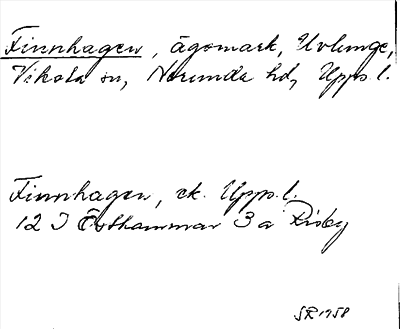 Finnhagen, ägomark, Uvlunge,
Viksta sn, Norunda hd, Upps. l.
Finnhagen, ek. Upps. l.
12 I Östhammar 3 a Risby
SR 1958